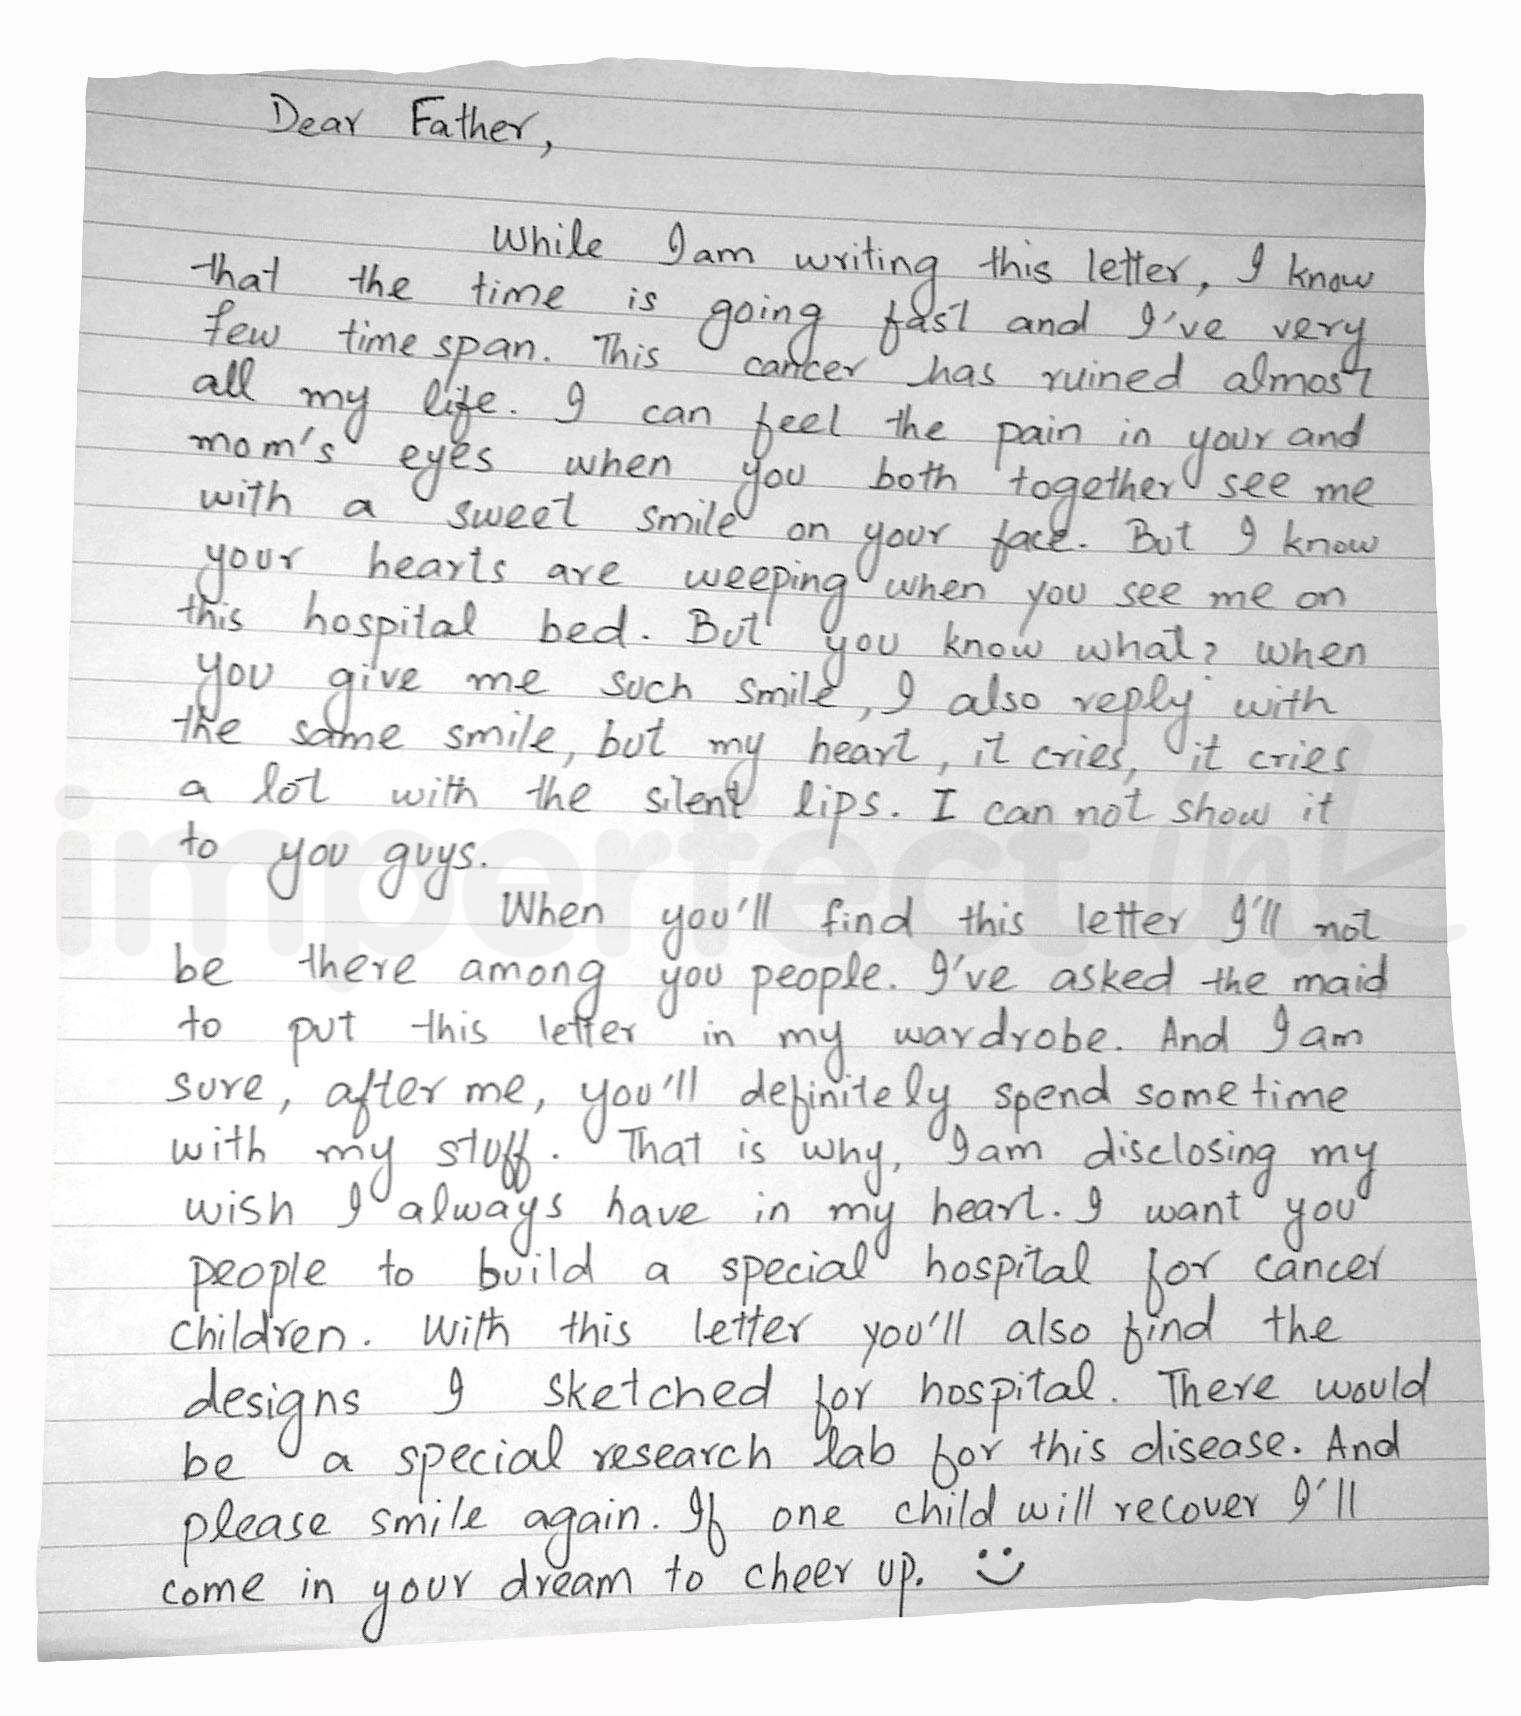 Dear Father,
While I am writing this letter, I know
that the time is going fast and I've very
few time span. This cancer has ruined almost
all my life. I can feel the pain in your and
mom's eyes when you both together see me
with a sweet smile on your face. But I know
your hearts are weeping when you see me on
this hospital bed. But you know what? when
you give me such smile, I also reply with
the same smile, but my heart, it cries, it cries
a lot with the silent lips. I can not show it
to you guys.
imperfect ink
When you'll find this letter I'll not
be there among you people. I've asked the maid
to put this letter in my wardrobe. And I am
sure, after me, you'll definitely spend some time
with my stuff. That is why, I am disclosing my
wish I always have in my heart. I want you
people to build a special hospital for cancer
children. With this letter you'll also find the
designs I sketched for hospital. There would
be a special research lab for this disease. And
please smile again. If one child will recover I'll
come in your dream to cheer up. :)